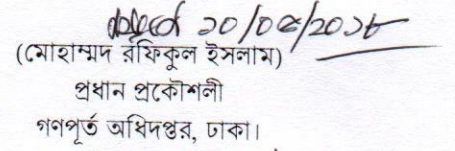 ১০/০৫/২০১৮
(মোহাম্মদ রফিকুল ইসলাম)
প্রধান প্রকৌশলী
গণপূর্ত অধিদপ্তর, ঢাকা।